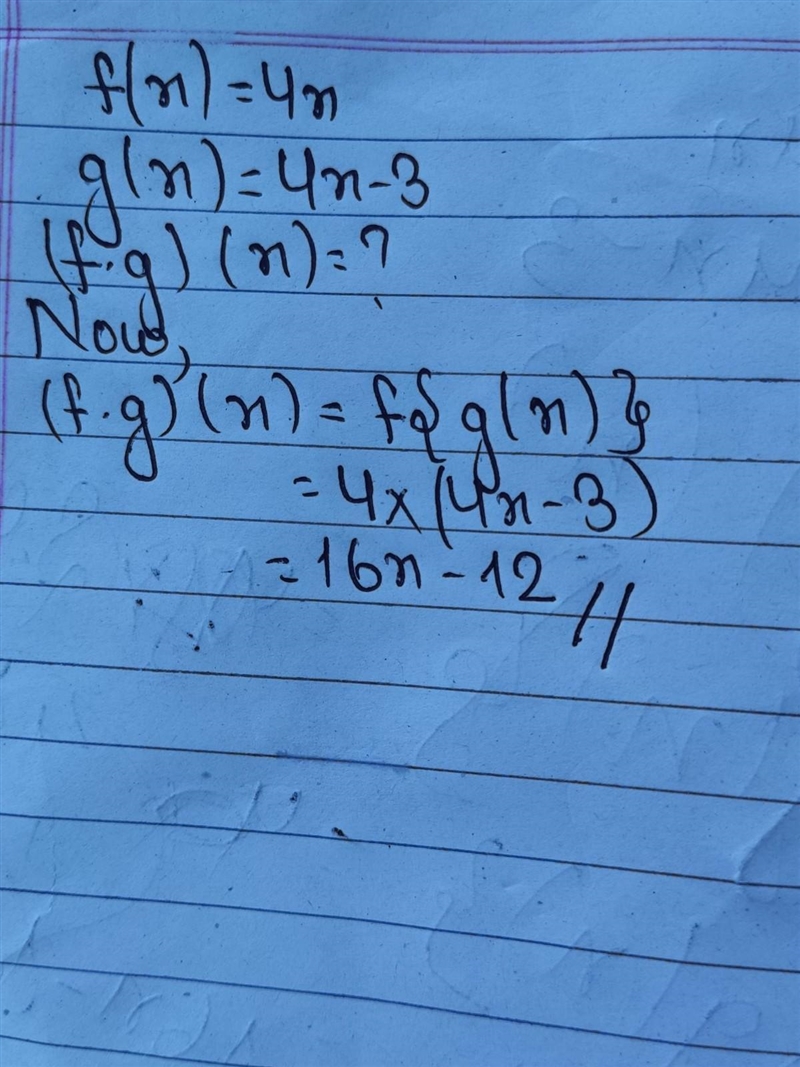 f(x)=4x
g(x)=4x-3
(f.g) (x)=?
Now,
(f.g) (x) = f{g(x)}
= 4×(4x-3)
=16x-12 //